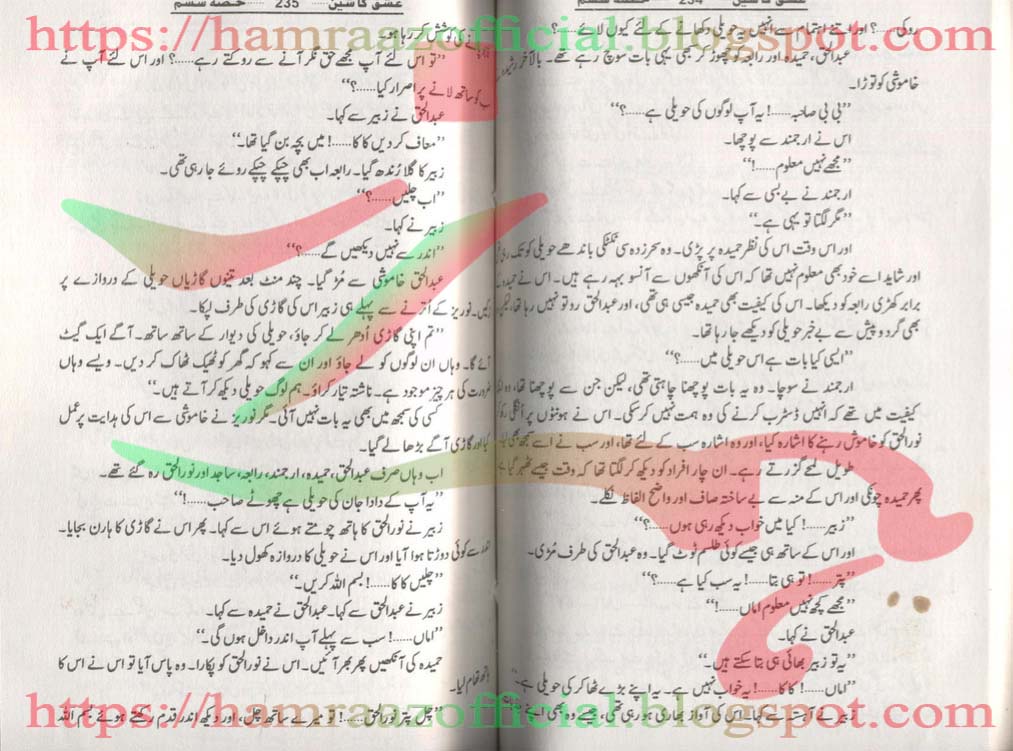 عشق کا شین 234 حصہ ششم
روکی......؟ اور اتنے اہتمام سے انہیں یہ حویلی دکھانے کے لئے کیوں لائے......؟
عبدالحق، حمیدہ اور رابعہ کو چھوڑ کر سبھی یہی بات سوچ رہے تھے۔ بالآخر رشیدہ نے
خاموشی کو توڑا۔
’’بی بی صاحبہ......! یہ آپ لوگوں کی حویلی ہے......؟‘‘
اس نے ارجمند سے پوچھا۔
’’مجھے نہیں معلوم......!‘‘
ارجمند نے بے بسی سے کہا۔
’’مگر لگتا تو یہی ہے۔‘‘
اور اس وقت اس کی نظر حمیدہ پر پڑی۔ وہ سحرزدہ سی ٹکٹکی باندھے حویلی کو تک رہی تھی
اور شاید اسے خود بھی معلوم نہیں تھا کہ اس کی آنکھوں سے آنسو بہہ رہے ہیں۔ اس نے حمیدہ کے
برابر کھڑی رابعہ کو دیکھا۔ اس کی کیفیت بھی حمیدہ جیسی ہی تھی، اور عبدالحق رو تو نہیں رہا تھا، لیکن
بھی گردوپیش سے بے خبر حویلی کو دیکھے جا رہا تھا۔
’’ایسی کیا بات ہے اس حویلی میں......؟‘‘
ارجمند نے سوچا۔ وہ یہ بات پوچھنا چاہتی تھی، لیکن جن سے پوچھنا تھا، وہ
کیفیت میں تھے کہ انہیں ڈسٹرب کرنے کی وہ ہمت نہیں کر سکی۔ اس نے ہونٹوں پر انگلی رکھ کر
نورالحق کو خاموش رہنے کا اشارہ کیا، اور وہ اشارہ سب کے لئے تھا، اور سب نے اسے سمجھ بھی لیا
طویل لمحے گزرتے رہے۔ ان چار افراد کو دیکھ کر لگتا تھا کہ وقت جیسے ٹھہر گیا ہے
پھر حمیدہ چونکی اور اس کے منہ سے بے ساختہ صاف اور واضح الفاظ نکلے۔
’’زبیر......! کیا میں خواب دیکھ رہی ہوں......؟‘‘
اور اس کے ساتھ ہی جیسے کوئی طلسم ٹوٹ گیا۔ وہ عبدالحق کی طرف مڑی۔
’’پتر......! تو ہی بتا......! یہ سب کیا ہے......؟‘‘
’’مجھے کچھ نہیں معلوم اماں......!‘‘
عبدالحق نے کہا۔
’’یہ تو زبیر بھائی ہی بتا سکتے ہیں۔‘‘
’’اماں......! کاکا......! یہ خواب نہیں ہے۔ یہ اپنے بڑے ٹھاکر کی حویلی ہے۔‘‘
زبیر نے آہستہ سے کہا۔ اس کی آواز بھاری ہو رہی تھی، جیسے وہ بھی اپنے
عشق کا شین 235 حصہ ششم
کی کوشش کر رہا ہو۔
’’تو اس لئے آپ مجھے حق نگر آنے سے روکتے رہے......؟ اور اس لئے آپ نے
سب کو ساتھ لانے پر اصرار کیا......؟‘‘
عبدالحق نے زبیر سے کہا۔
’’معاف کر دیں کاکا......! میں بچہ بن گیا تھا۔‘‘
زبیر کا گلا رُندھ گیا۔ رابعہ اب بھی چپکے چپکے روئے جا رہی تھی۔
’’اب چلیں......؟‘‘
زبیر نے کہا۔
’’اندر سے نہیں دیکھیں گے......؟‘‘
عبدالحق خاموشی سے مُڑ گیا۔ چند منٹ بعد تینوں گاڑیاں حویلی کے دروازے پر
رکیں۔ نوریز کے اُترنے سے پہلے ہی زبیر اس کی گاڑی کی طرف لپکا۔
’’تم اپنی گاڑی اُدھر لے کر جاؤ، حویلی کی دیوار کے ساتھ ساتھ۔ آگے ایک گیٹ
آئے گا۔ وہاں ان لوگوں کو لے جاؤ اور ان سے کہو کہ گھر کو ٹھیک ٹھاک کر دیں۔ ویسے وہاں
ضرورت کی ہر چیز موجود ہے۔ ناشتہ تیار کراؤ۔ ہم لوگ حویلی دیکھ کر آتے ہیں۔‘‘
کسی کی سمجھ میں بھی یہ بات نہیں آئی۔ مگر نوریز نے خاموشی سے اس کی ہدایت پر عمل
کیا اور گاڑی آگے بڑھا لے گیا۔
اب وہاں صرف عبدالحق، حمیدہ، ارجمند، رابعہ، ساجد اور نورالحق رہ گئے تھے۔
’’یہ آپ کے دادا جان کی حویلی ہے چھوٹے صاحب......!‘‘
زبیر نے نورالحق کا ہاتھ چومتے ہوئے اس سے کہا۔ پھر اس نے گاڑی کا ہارن بجایا۔
اندر سے کوئی دوڑتا ہوا آیا اور اس نے حویلی کا دروازہ کھول دیا۔
’’چلیں کاکا......! بسم اللہ کریں۔‘‘
زبیر نے عبدالحق سے کہا۔ عبدالحق نے حمیدہ سے کہا۔
’’اماں......! سب سے پہلے آپ اندر داخل ہوں گی۔‘‘
حمیدہ کی آنکھیں پھر بھر آئیں۔ اس نے نورالحق کو پکارا۔ وہ پاس آیا تو اس نے اس کا
ہاتھ تھام لیا۔
’’چل پتر نورالحق......! تو میرے ساتھ چل، اور دیکھ اندر قدم رکھتے ہوئے بسم اللہ
https://hamraazofficial.blogspot.com
https://hamraazofficial.blogspot.com